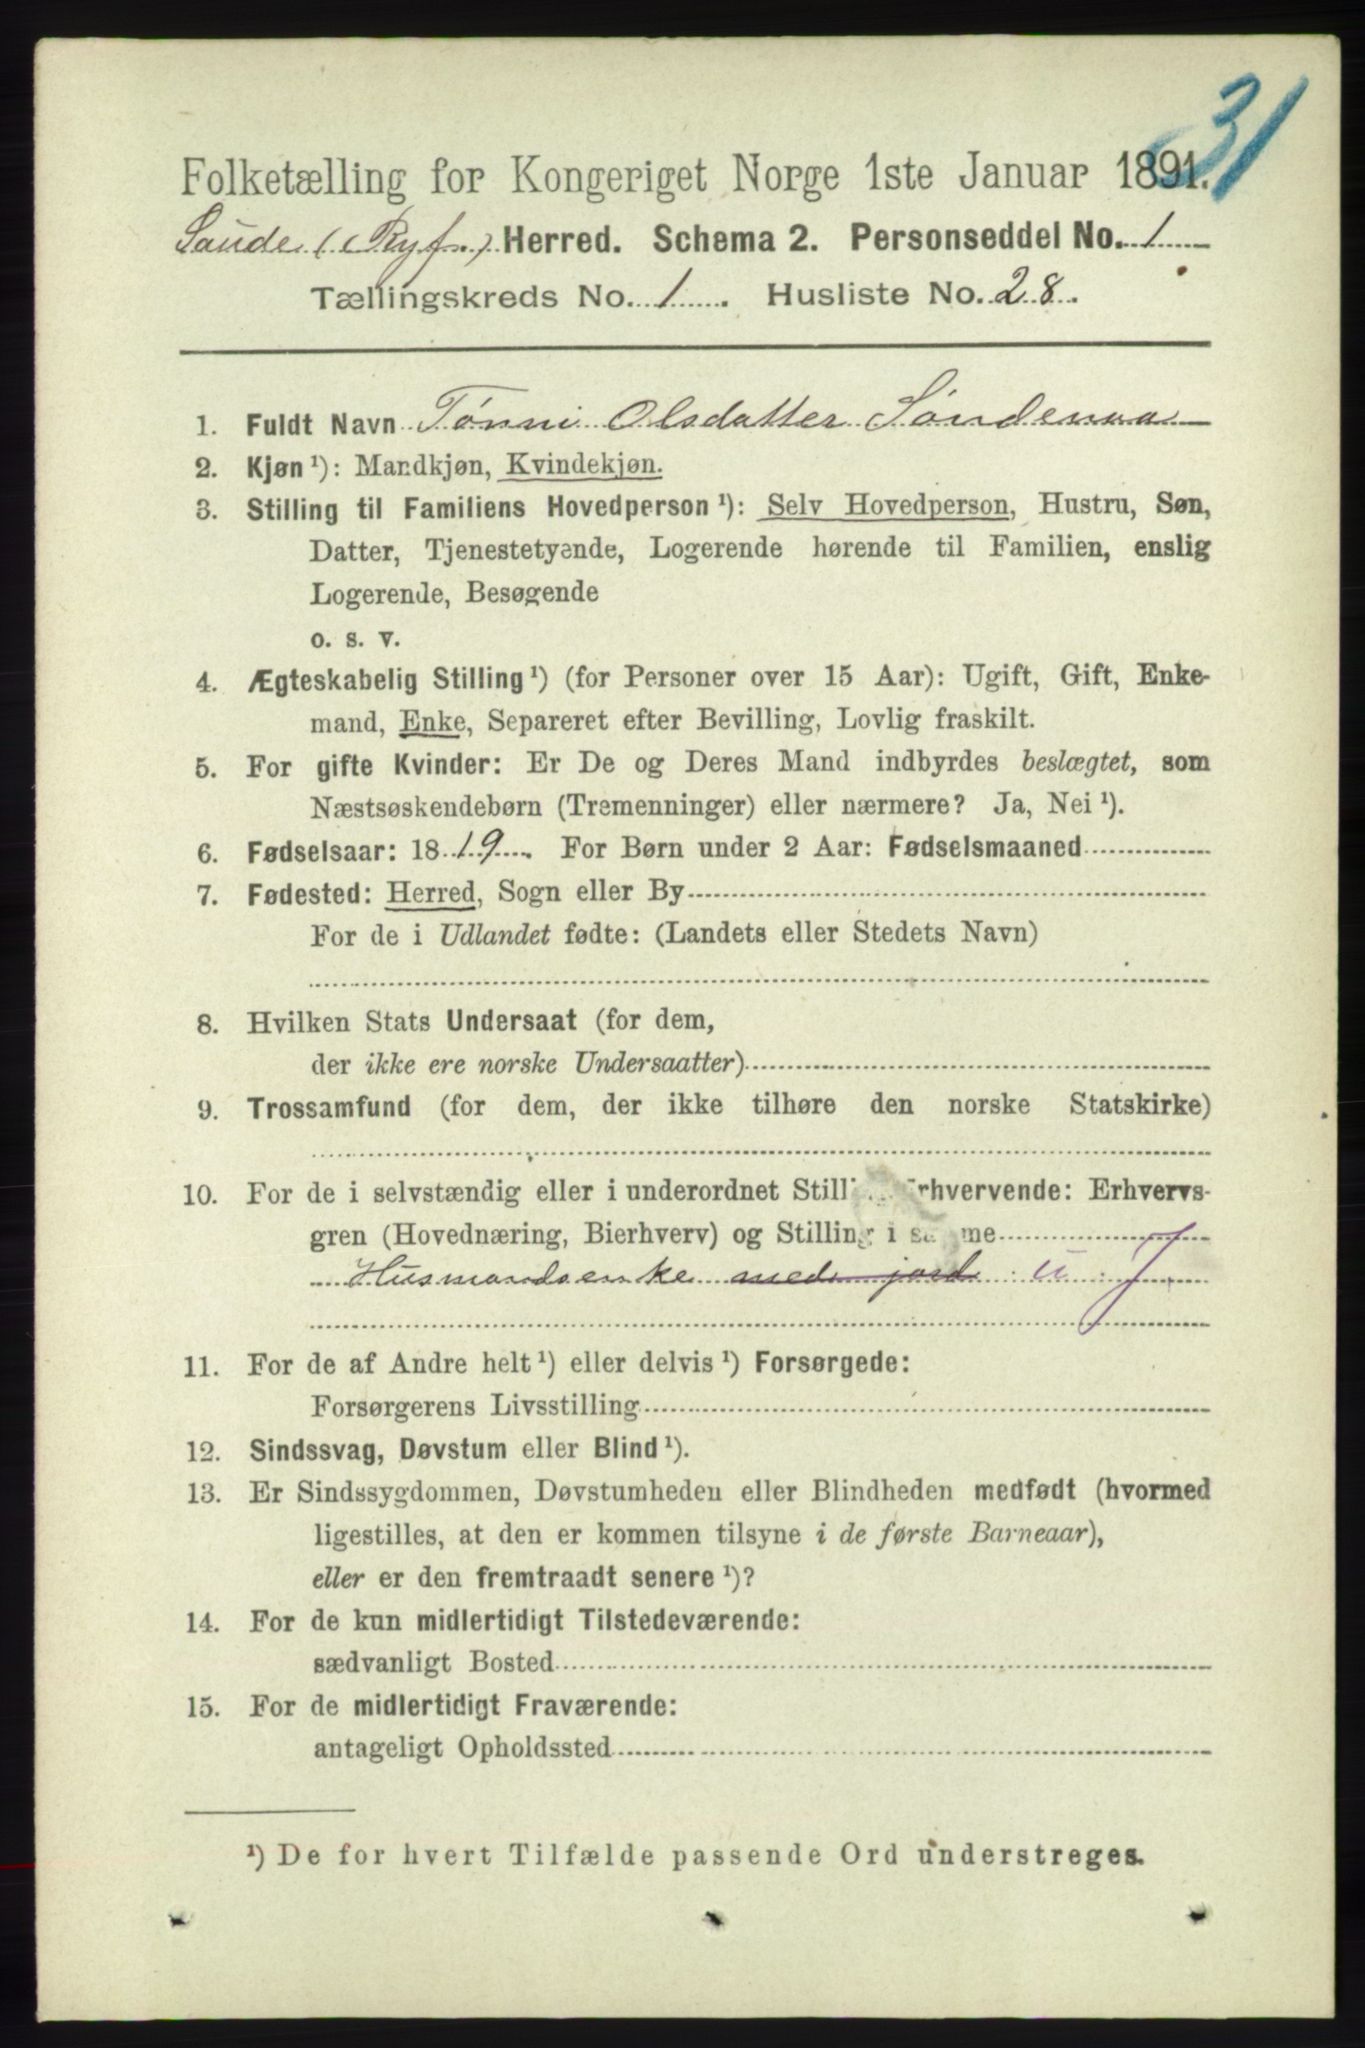 31
Folketælling for Kongeriget Norge 1ste Januar 1891.
Saude (Ryf.) Herred. Schema 2. Personseddel No. 1
Tællingskreds No. 1. Husliste No. 28.
1. Fuldt Navn Tønni Olsdatter Søndenaa
2. Kjøn ¹): Mandkjøn, Kvindekjøn.
3. Stilling til Familiens Hovedperson ¹): Selv Hovedperson, Hustru, Søn,
Datter, Tjenestetyende, Logerende hørende til Familien, enslig
Logerende, Besøgende
o. s. v.
4. Ægteskabelig Stilling ¹) (for Personer over 15 Aar): Ugift, Gift, Enke-
mand, Enke, Separeret efter Bevilling, Lovlig fraskilt.
5. For gifte Kvinder: Er De og Deres Mand indbyrdes beslægtet, som
Næstsøskendebørn (Tremenninger) eller nærmere? Ja, Nei ¹).
6. Fødselsaar: 1819. For Børn under 2 Aar: Fødselsmaaned
7. Fødested: Herred, Sogn eller By
For de i Udlandet fødte: (Landets eller Stedets Navn)
8. Hvilken Stats Undersaat (for dem,
der ikke ere norske Undersaatter)
9. Trossamfund (for dem, der ikke tilhøre den norske Statskirke)
10. For de i selvstændig eller i underordnet Stilling Erhvervende: Erhvervs-
gren (Hovednæring, Bierhverv) og Stilling i samme
Husmandsenke med jord u. J.
11. For de af Andre helt ¹) eller delvis ¹) Forsørgede:
Forsørgerens Livsstilling
12. Sindssvag, Døvstum eller Blind ¹).
13. Er Sindssygdommen, Døvstumheden eller Blindheden medfødt (hvormed
ligestilles, at den er kommen tilsyne i de første Barneaar),
eller er den fremtraadt senere ¹)?
14. For de kun midlertidigt Tilstedeværende:
sædvanligt Bosted
15. For de midlertidigt Fraværende:
antageligt Opholdssted
¹) De for hvert Tilfælde passende Ord understreges.